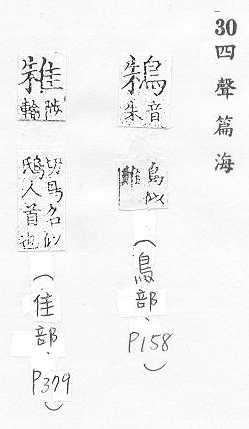 30 四聲篇海
鴸 音朱 鳥似雞 (鳥部、P158)
陟輸切鳥名似鴟人首也 (隹部、P379)